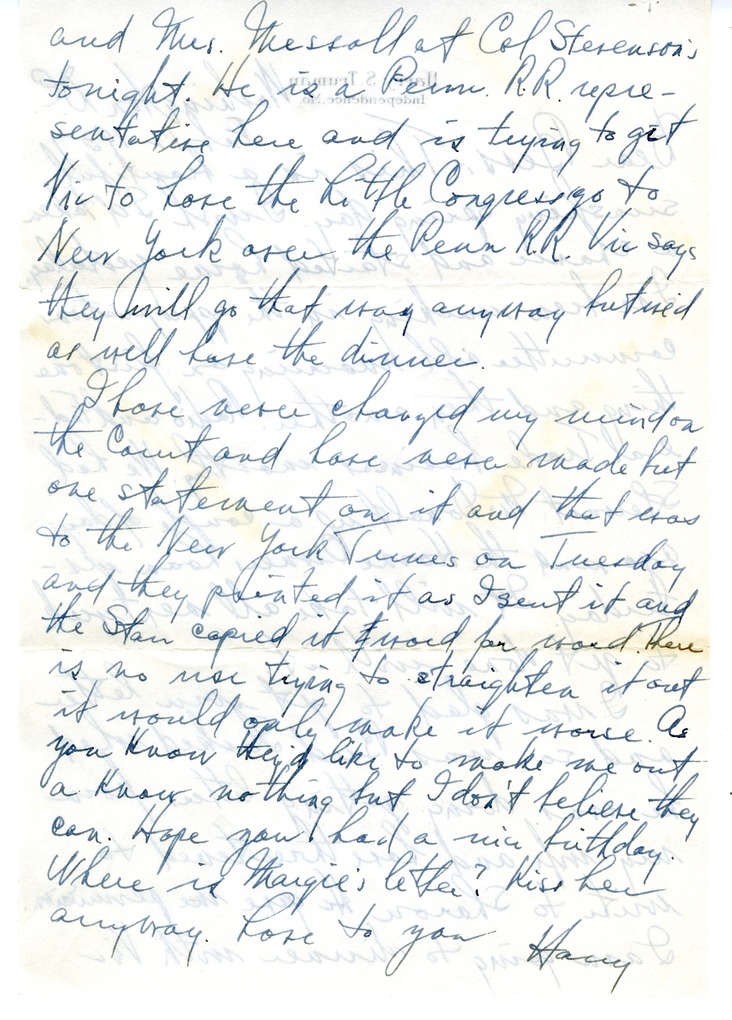 and Mrs. Messall at Col Stevenson's
tonight. He is a Penn. R.R. repre-
sentative here and is trying to get
Vic to have the Little Congress go to
New York over the Penn R.R. Vic says
they will go that way anyway but we'd
as well have the dinner.
I have never changed my mind on
the Court and have never made but
one statement on it and that was
to the New York Times on Tuesday
and they printed it as I sent it and
the Star copied it word for word. There
is no use trying to straighten it out
it would only make it worse. As
you know they'd like to make me out
a know nothing but I don't believe they
can. Hope you had a nice birthday.
Where is Margie's letter? Kiss her
anyway. Love to you Harry
Harry S. Truman
Independence, Mo.